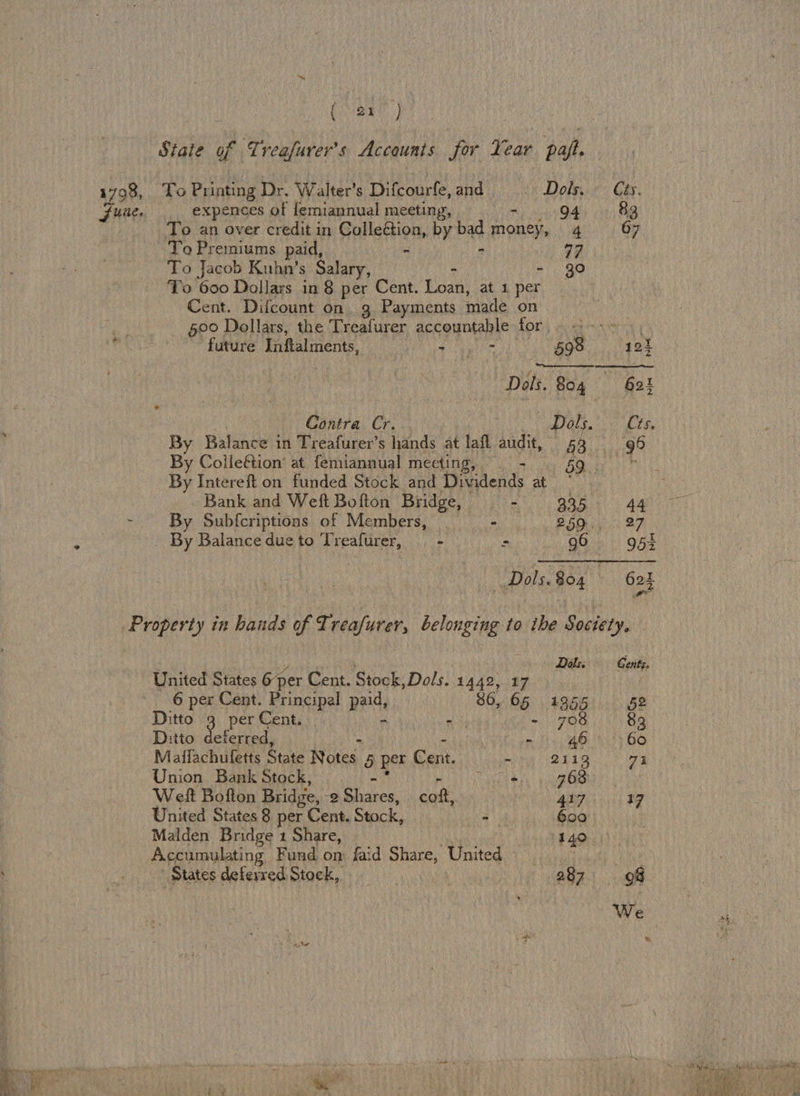 ( 21 )
State of Treaſurer's Accounts for Year paſt.
1798, To Printing Dr. Walter's Diſcourſe, and Dols. Cts.
June. expences of ſemiannual meeting, - 94 83
To an over credit in Collection, by bad money, 4 67
To Premiums paid, - - 77
To Jacob Kuhn's Salary, - - 30
To 600 Dollars in 8 per Cent. Loan, at 1 per
Cent. Diſcount on 3 Payments made on
500 Dollars, the Treaſurer accountable for
future Inſtalments, - - 598 12½
Dols. 804 62½
Contra Cr. Dols. Cts.
By Balance in Treaſurer's hands at laſt audit, 53 96
By Collection at ſemiannual meeting, - 59
By Intereſt on funded Stock and Dividends at
Bank and Weſt Boſton Bridge, - 335 44
By Subſcriptions of Members, - 259 27
By Balance due to Treaſurer, - - 96 95½
Dols. 804 62½
Property in hands of Treaſurer, belonging to the Society.
Dols. Cents.
United States 6 per Cent. Stock, Dols. 1442, 17
6 per Cent. Principal paid, 86, 65 1355 52
Ditto 3 per Cent. - - - 708 83
Ditto deferred, - - - 46 60
Maſſachuſetts State Notes 5 per Cent. - 2113 71
Union Bank Stock, - - - 768
Weſt Boſton Bridge, 2 Shares, coſt, 417 17
United States 8 per Cent. Stock, - 600
Malden Bridge 1 Share, 140
Accumulating Fund on ſaid Share, United
States deferred Stock, 287 98
We